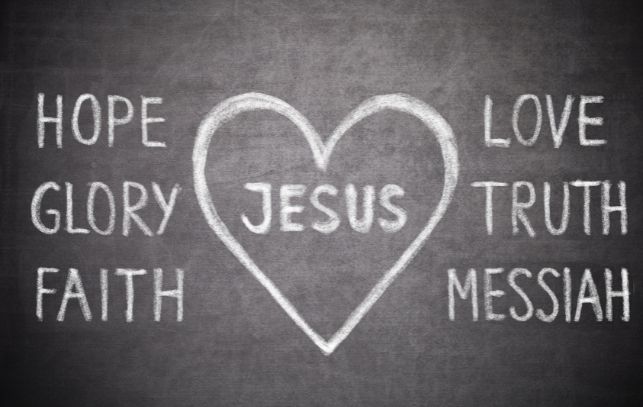 HOPE
GLORY
FAITH
JESUS
LOVE
TRUTH
MESSIAH